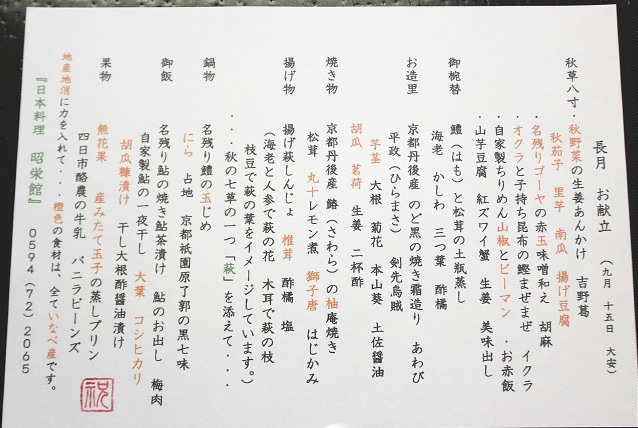 長月 お献立 (九月 十五日 大安)
秋草八寸・秋野菜の生姜あんかけ 吉野葛
秋茄子 里芋 南瓜 揚げ豆腐
・名残りゴーヤの赤玉味噌和え 胡麻
・オクラと子持ち昆布の鰹まぜまぜ イクラ
・自家製ちりめん山椒とピーマン ・お赤飯
・山芋豆腐 紅ズワイ蟹 生姜 美味出し
御椀替 鱧(はも)と松茸の土瓶蒸し
海老 かしわ 三つ葉 酢橘
お造里 京都丹後産 のど黒の焼き霜造り あわび
平政(ひらまさ) 剣先烏賊
芋茎 大根 菊花 本山葵 土佐醤油
胡瓜 茗荷 生姜 二杯酢
焼き物 京都丹後産 鰆(さわら)の柚庵焼き
松茸 丸十レモン煮 獅子唐 はじかみ
揚げ物 揚げ萩しんじょ 椎茸 酢橘 塩
(海老と人参で萩の花 木耳で萩の枝
枝豆で萩の葉をイメージしています。)
・・・秋の七草の一つ「萩」を添えて・・・
鍋物 名残り鱧の玉じめ
にら 占地 京都祇園原了郭の黒七味
御飯 名残り鮎の焼き鮎茶漬け 鮎のお出し 梅肉
自家製鮎の一夜干し 大葉 コシヒカリ
胡瓜糠漬け 干し大根酢醤油漬け
果物 無花果 産みたて玉子の蒸しプリン
四日市酪農の牛乳 バニラビーンズ
地産地消に力を入れて・・・橙色の食材は、全ていなべ産です。
『日本料理 昭栄館』 0594(72)2065
祝